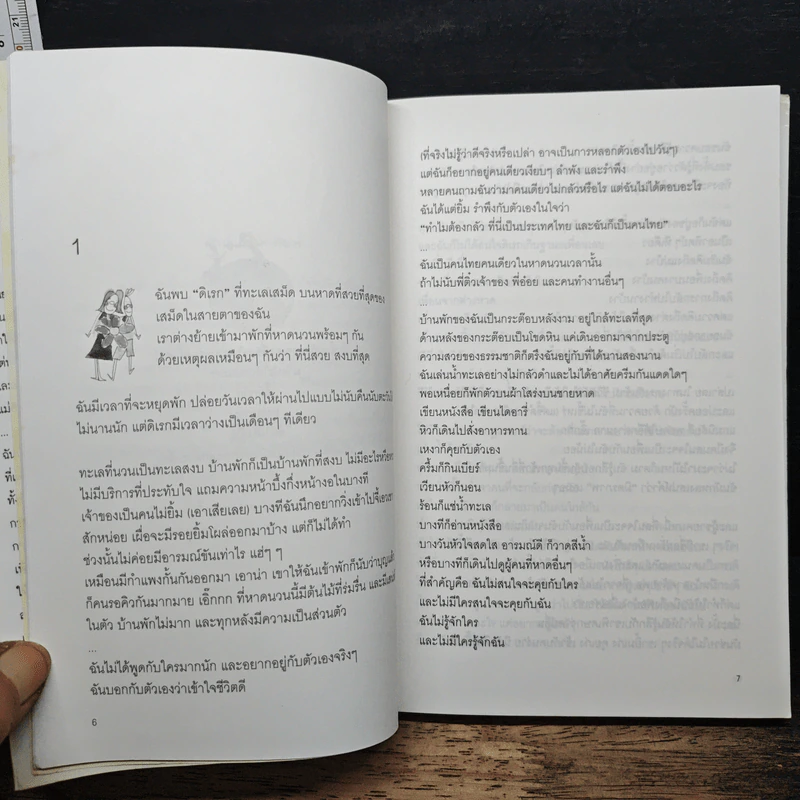 1
ฉันพบ “ดิเรก” ที่ทะเลเสม็ด บนหาดที่สวยที่สุดของ
เสม็ดในสายตาของฉัน
เราต่างย้ายเข้ามาพักที่หาดนวนพร้อมๆ กัน
ด้วยเหตุผลเหมือนๆ กันว่า ที่นี่สวย สงบที่สุด
ฉันมีเวลาที่จะหยุดพัก ปล่อยวันเวลาให้ผ่านไปแบบไม่นับคืนนับตะวัน
ไม่นานนัก แต่ดิเรกมีเวลาว่างเป็นเดือนๆ ทีเดียว
ทะเลที่นวนเป็นทะเลสงบ บ้านพักก็เป็นบ้านพักที่สงบ ไม่มีอะไร
ไม่มีบริการที่ประทับใจ แถมความหน้าบึ้งกึ่งหน้างอในบางที
เจ้าของเป็นคนไม่ยิ้ม (เอาเสียเลย) บางทีฉันนึกอยากวิ่งเข้าไปจี้เอว
สักหน่อย เผื่อจะมีรอยยิ้มโผล่ออกมาบ้าง แต่ก็ไม่ได้ทำ
ช่วงนั้นไม่ค่อยมีอารมณ์ขันเท่าไร แฮ่ๆ ๆ
เหมือนมีกำแพงกั้นกันออกมา เอาน่า เขาให้ฉันเข้าพักก็นับว่าบุญแล้ว
ก็คนรอคิวกันมากมาย เอิ๊กกก ที่หาดนวนนี้มีต้นไม้ที่ร่มรื่น และมี
ในตัว บ้านพักไม่มาก และทุกหลังมีความเป็นส่วนตัว
...
ฉันไม่ได้พูดกับใครมากนัก และอยากอยู่กับตัวเองจริงๆ
ฉันบอกกับตัวเองว่าเข้าใจชีวิตดี
6
(ที่จริงไม่รู้ว่าดีจริงหรือเปล่า อาจเป็นการหลอกตัวเองไปวันๆ)
แต่ฉันก็อยากอยู่คนเดียวเงียบๆ ลำพัง และรำพึง
หลายคนถามฉันว่ามาคนเดียวไม่กลัวหรือไร แต่ฉันไม่ได้ตอบอะไร
ฉันได้แต่ยิ้ม รำพึงกับตัวเองในใจว่า
“ทำไมต้องกลัว ที่นี่เป็นประเทศไทย และฉันก็เป็นคนไทย”
...
ฉันเป็นคนไทยคนเดียวในหาดนวนเวลานั้น
ถ้าไม่นับพี่ติ๋วเจ้าของ พี่อ๋อย และคนทำงานอื่นๆ
...
บ้านพักของฉันเป็นกระต๊อบหลังงาม อยู่ใกล้ทะเลที่สุด
ด้านหลังของกระต๊อบเป็นโขดหิน แค่เดินออกมาจากประตู
ความสวยของธรรมชาติก็ตรึงฉันอยู่กับที่ได้นานสองนาน
ฉันเล่นน้ำทะเลอย่างไม่กลัวดำและไม่ได้อาศัยครีมกันแดดใดๆ
พอเหนื่อยก็พักตัวบนผ้าโสร่งบนชายหาด
เขียนหนังสือ เขียนไดอารี่
หิวก็เดินไปสั่งอาหารทาน
เหงาก็คุยกับตัวเอง
ครึ้มก็กินเบียร์
เวียนหัวก็นอน
ร้อนก็แช่น้ำทะเล
บางทีก็อ่านหนังสือ
บางวันหัวใจสดใส อารมณ์ดี ก็วาดสีน้ำ
หรือบางทีก็เดินไปดูผู้คนที่หาดอื่นๆ
ที่สำคัญคือ ฉันไม่สนใจจะคุยกับใคร
และไม่มีใครสนใจจะคุยกับฉัน
ฉันไม่รู้จักใคร
และไม่มีใครรู้จักฉัน
7